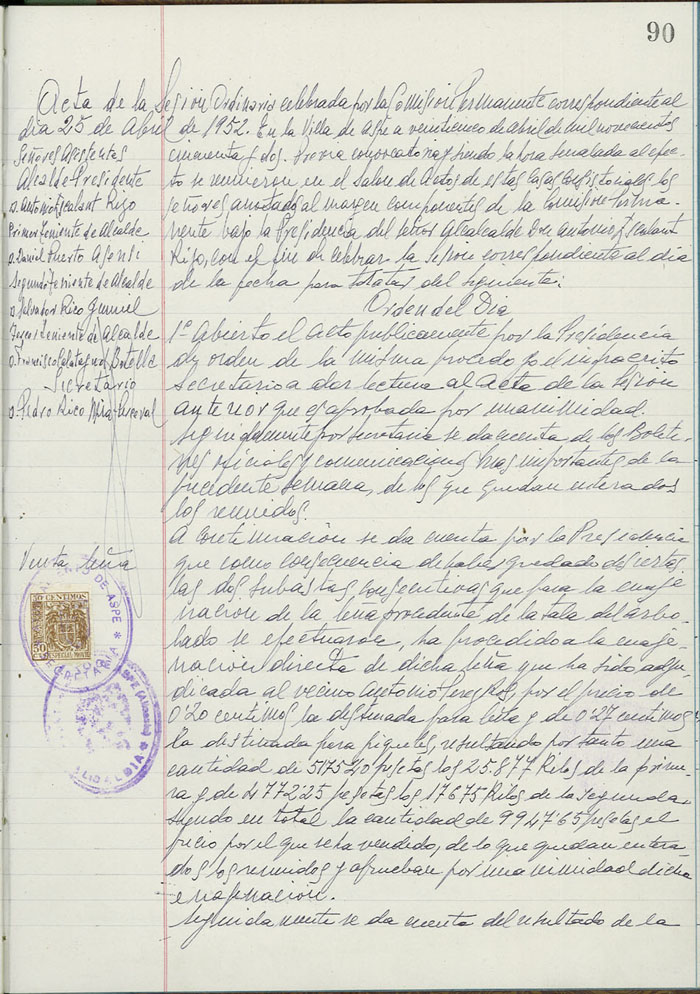 90
Acta de la Sesion Ordinaria celebrada por la Comision Permanente correspondiente al
dia 25 de Abril de 1952. En la Villa de Aspe a veinticinco de abril de mil novecientos
cincuenta y dos. Previa convocatoria y siendo la hora señalada al efec-
to se reunieron en el Salon de Actos de estas Casas Consistoriales los
señores anotados al margen componentes de la Comision Perma-
nente bajo la Presidencia del señor Alcalde Don Antonio Escalant
Rizo, con el fin de celebrar la sesion correspondiente al dia
de la fecha para tratar del siguiente:
Orden del Dia
1º Abierto el acto publicamente por la Presidencia
de orden de la misma procedo yo el infrascrito
secretario a dar lectura al Acta de la Sesion
anterior que es aprobada por unanimidad.
Seguidamente por secretaria se da cuenta de los Boleti-
nes oficiales y comunicaciones mas importantes de la
precedente semana, de los que quedan enterados
los reunidos.
A continuacion se da cuenta por la Presidencia
que como consecuencia de haber quedado desiertas
las dos subastas consecutivas que para la enaje-
nacion de la leña procedente de la tala del arbo-
lado se efectuaron, ha procedido a la enaje-
nacion directa de dicha leña que ha sido adju-
dicada al vecino Antonio Perez, por el precio de
0'20 centimos la destinada para leña y de 0'27 centimos
la destinada para piquetes, resultando por tanto una
cantidad de 5175'40 pesetas los 25.877 Kilos de la prime-
ra y de 4772'25 pesetas los 17675 Kilos de la segunda
siendo en total la cantidad de 9947'65 pesetas el
precio por el que se ha vendido, de lo que quedan entera-
dos los reunidos y aprueban por unanimidad dicha
enajenación.
Seguidamente se da cuenta del resultado de la
Señores Asistentes
Alcalde Presidente
D. Antonio Escalant Rizo
Primer Teniente de Alcalde
D. Daniel Puerto Asensi
Segundo Teniente de Alcalde
D. Salvador Rico
Tercer Teniente de Alcalde
D. Francisco Calatayud Botella
Secretario
D. Pedro Rico Mira-Perceval
Venta leña
DE ASPE
SECRETARIA
50 CENTIMOS
50
ESPECIAL MOVIL
ASPE (Alicante)
ALCALDIA